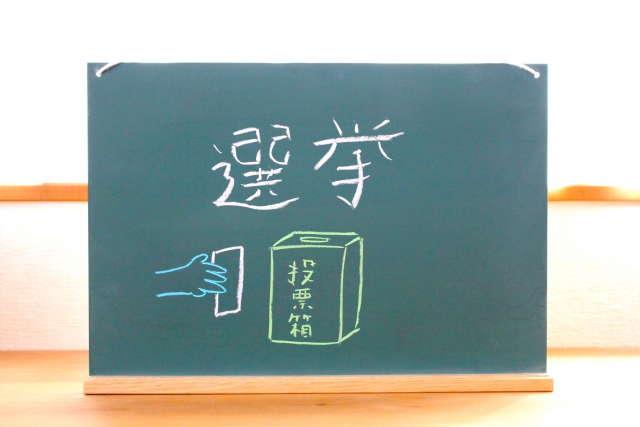 選挙
投票箱